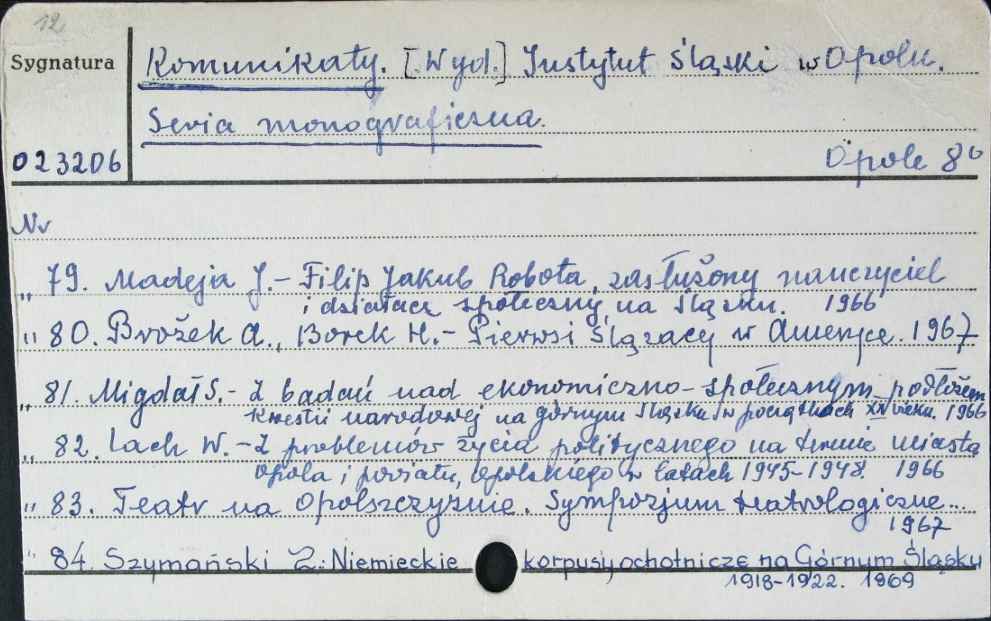 12
Sygnatura
Komunikaty. [Wyd.] Instytut Śląski w Opolu.
Seria monograficzna.
023206
Opole 8°
Nr
„ 79. Madeja J. - Filip Jakub Robota, zasłużony nauczyciel
i działacz społeczny na Śląsku. 1966
„ 80. Brożek A., Borek H. - Pierwsi Ślązacy w Ameryce. 1967
„ 81. Migdał S. - Z badań nad ekonomiczno-społecznym podłożem
kwestii narodowej na Górnym Śląsku w początkach XX wieku. 1966
„ 82. Lach W. - Z problemów życia politycznego na terenie miasta
Opola i powiatu opolskiego w latach 1945-1948. 1966
„ 83. Teatr na Opolszczyźnie. Sympozjum teatrologiczne...
1967
„ 84. Szymański Z.: Niemieckie korpusy ochotnicze na Górnym Śląsku
1918-1922. 1969